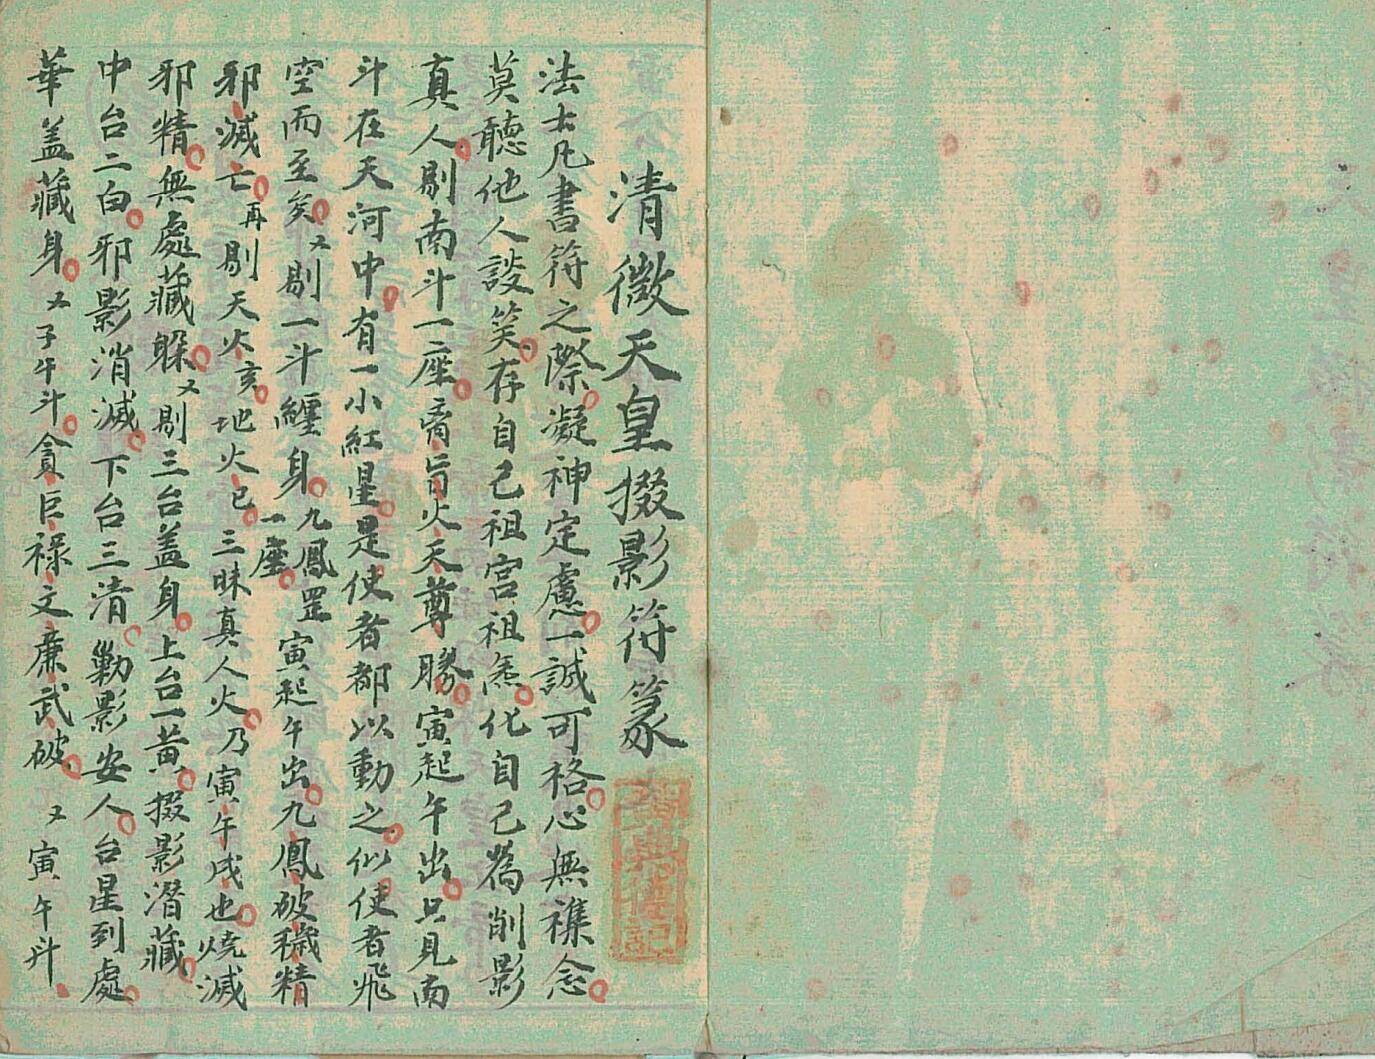 清微天皇掇影符篆
法士凡書符之際凝神定慮一誠可格心無襍念
莫聽他人談笑存自己祖宮祖炁化自己為削影
真人剔南斗一座奇旨火天尊勝寅起午出只見南
斗在天河中有一小紅星是使者都以動之似使者飛
空而至矣又剔一斗纏身九鳳罡一座寅起午出九鳳破穢精
邪滅亡再剔天火亥地火已三昧真人火乃寅午戌也燒滅
邪精無處藏躲又剔三台盖身上台一黄掇影潛藏
中台二白邪影消滅下台三清勦影安人台星到處
華盖藏身又子午斗貪巨祿文廉武破又寅午斗